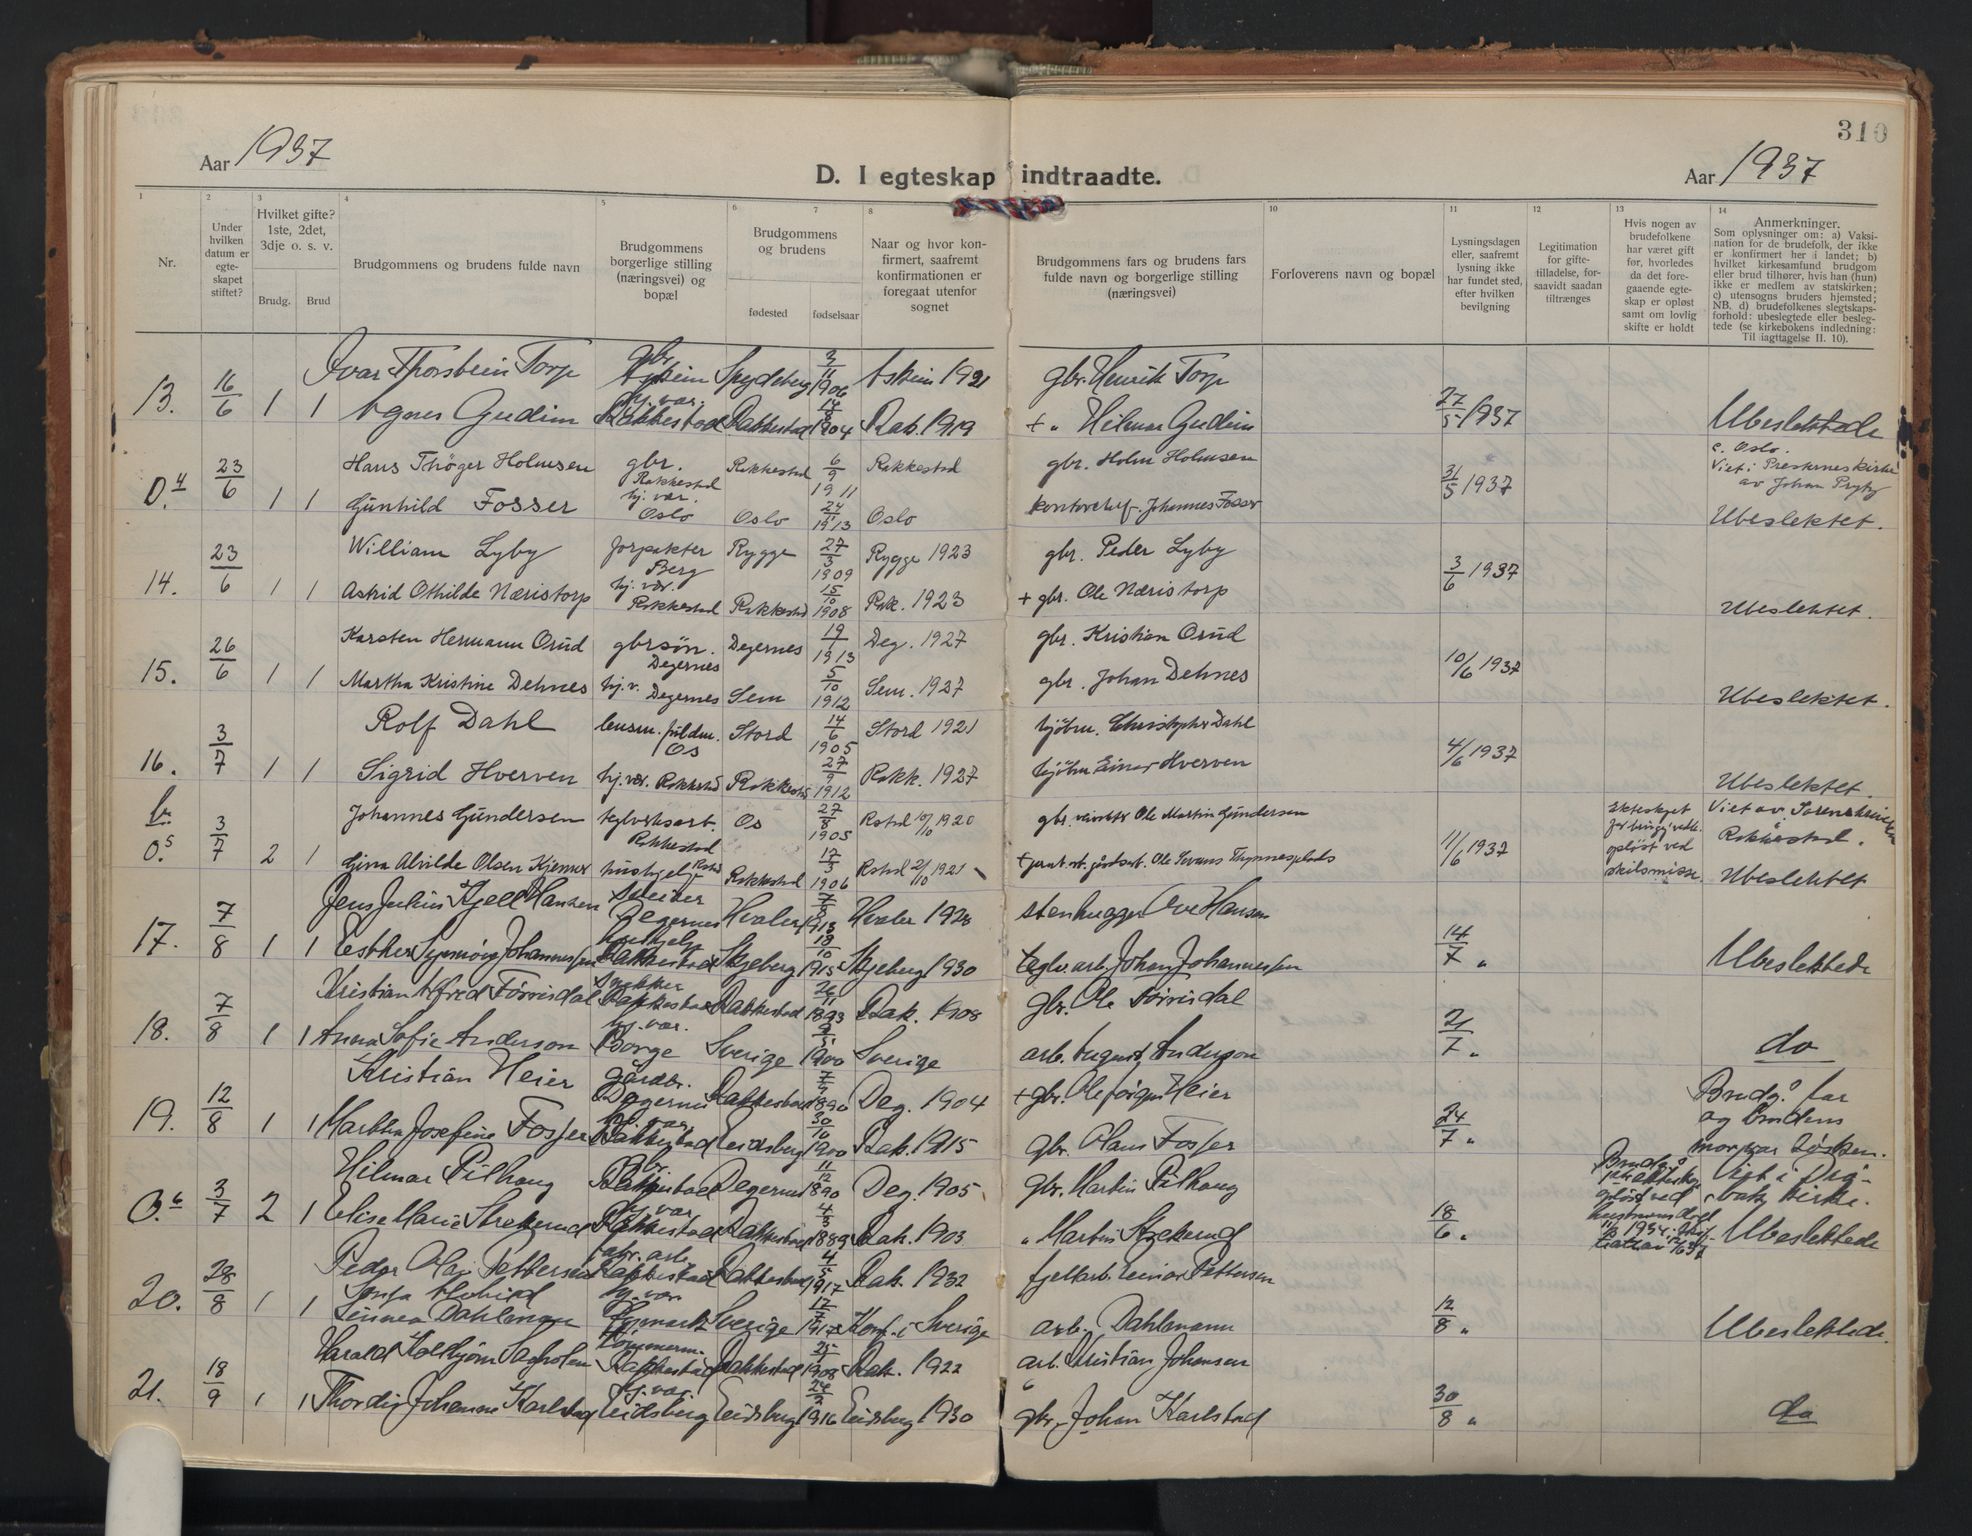 310
Aar 1937
D. I egteskap indtraadte.
Aar 1937
1 2 3 4 5 6 7 8 9 10 11 12 13 14
Nr.
Under hvilken datum er egte-skapet stiftet?
Hvilket gifte? 1ste, 2det, 3dje o. s. v.
Brudg. Brud
Brudgommens og brudens fulde navn
Brudgommens borgerlige stilling (næringsvei) og bopæl
Brudgommens og brudens
fødested fødselsaar
Naar og hvor kon-firmert, saafremt konfirmationen er foregaat utenfor sognet
Brudgommens fars og brudens fars fulde navn og borgerlige stilling (næringsvei)
Forloverens navn og bopæl
Lysningsdagen eller, saafremt lysning ikke har fundet sted, efter hvilken bevilgning
Legitimation for gifte-tilladelse, for-saavidt saadan tiltrænges
Hvis nogen av brudefolkene har været gift før, hvorledes da det fore-gaaende egte-skap er opløst samt om lovlig skifte er holdt
Anmerkninger.
Som oplysninger om: a) Vaksi-nation for de brudefolk, der ikke er konfirmert her i landet; b) hvilket kirkesamfund brudgom eller brud tilhører, hvis han (hun) ikke er medlem av statskirken; c) utensogns bruders hjemsted; NB. d) brudefolkenes slegtskaps-forhold: ubeslegtede eller besleg-tede (se kirkebokens indledning: Til iagttagelse II. 10).
13. 16/6 1 1 Ivar Thorstein Torp gbr. Askim Spydeberg 2/11 1906 Askim 1921 gbr. Henrik Torp 27/5 1937
Agnes Gudim hj. vær. Rakkestad Rakkestad 14/8 1904 Rak. 1919 + " Hilmar Gudim Ubeslektede
0.4 23/6 1 1 Hans Thøger Holmsen gbr. Rakkestad Rakkestad 6/9 1911 Rakkestad gbr. Holm Holmsen 31/5 1937 c. Oslo. Viet i Presternes kirke av Johan
Gunhild Fosser hj. vær. Oslo Oslo 24/1 1913 Oslo Johannes Fosser Ubeslektet.
14. 23/6 1 1 William Lyby forpakter Berg Rygge 27/3 1909 Rygge 1923 gbr. Peder Lyby 3/6 1937
Astrid Othilde Næristorp hj. vær. Rakkestad Rakkestad 15/10 1908 Rak. 1923 + gbr. Ole Næristorp Ubeslektet.
15. 26/6 1 1 Karsten Hermann Orud gbrsøn. Degernes Degernes 19/1 1913 Deg. 1927 gbr. Kristian Orud 10/6 1937
Martha Kristine Dehnes hj. v. Degernes Sem 5/10 1912 Sem. 1927 gbr. Johan Dehnes Ubeslektet.
16. 3/7 1 1 Rolf Dahl lensm. fuldm. Os Stord 14/6 1905 Stord 1921 kjøbm. Christopher Dahl 4/6 1937
Sigrid Hverven hj. vær. Rakkestad Rakkestad 27/9 1912 Rakk. 1927 kjøbm Einar Hverven Ubeslektet.
b. 0.5 3/7 2 1 Johannes Gundersen teglverksarb. Rakkestad Os 27/8 1905 Rakstd 10/10 1920 gbr. Ole Martin Gundersen 11/6 1937 Ekteskapet opløst ved skilsmisse. Viet av Sorenskriveren Rakkestad.
Gina Alvilde Olsen Kjenner hushjelp Rakkestad 17/3 1906 Rakstd 2/10 1921 Ubeslektet
17. 7/8 1 1 Jens Julius Kjell Hansen Degernes Hvaler 7/8 1913 Hvaler 1928 stenhugger Ove Hansen 14/7 "
Esther Synnøve Johannessen hushjelp Rakkestad Skjeberg 18/10 1915 Skjeberg 1930 teglv. arb. Johan Johannessen Ubeslektede
18. 7/8 1 1 Kristian Alfred Førrisdal Snekker Rakkestad Rakkestad 26/11 1893 Rak. 1908 gbr. Ole Førrisdal 21/7 "
Anna Sofie Anderson hj. vær. Borge Sverige 9/5 1900 Sverige arb. August Anderson do
19. 12/8 1 1 Kristian Heier gårdbr. Degernes Rakkestad 7/9 1890 Deg. 1904 + gbr. Ole Jørgen Heier 24/7 " Brudg. far og brudens mor var søsken.
Martha Josefine Fosser hj. vær. Rakkestad Eidsberg 30/10 1900 Rak. 1915 gbr. Hans Fosser
0.6 3/7 2 1 Hilmar Pilhaug gbr. Rakkestad Degernes 11/12 1890 Deg. 1905 gbr. Martin Pilhaug 18/6 " opløst ved hustruens død Viet i kirke.
Elise Marie Strekerud hj. vær. Rakkestad Rakkestad 4/3 1889 Rak. 1903 " Martin Strekerud Ubeslektede
20. 28/8 1 1 Peder Olav Pettersen fabr. arb. Rakkestad Rakkestad 4/5 1917 Rak. 1932 Einar Pettersen 12/8 "
Sonja Linnea Dahlman hj. vær. Sverige 17/7 1917 Konf. i Sverige arb. Dahlmann Ubeslektede.
21. 18/9 1 1 Harald Kolbjørn Sagholen tømmerm. Rakkestad Rakkestad 25/ 1908 Rak. 1922 arb. Kristian Johansen 30/8 "
Thordis Johanne Karlstad hj. vær. Eidsberg Eidsberg 24/2 1916 Eidsberg 1930 gbr. Johan Karlstad do